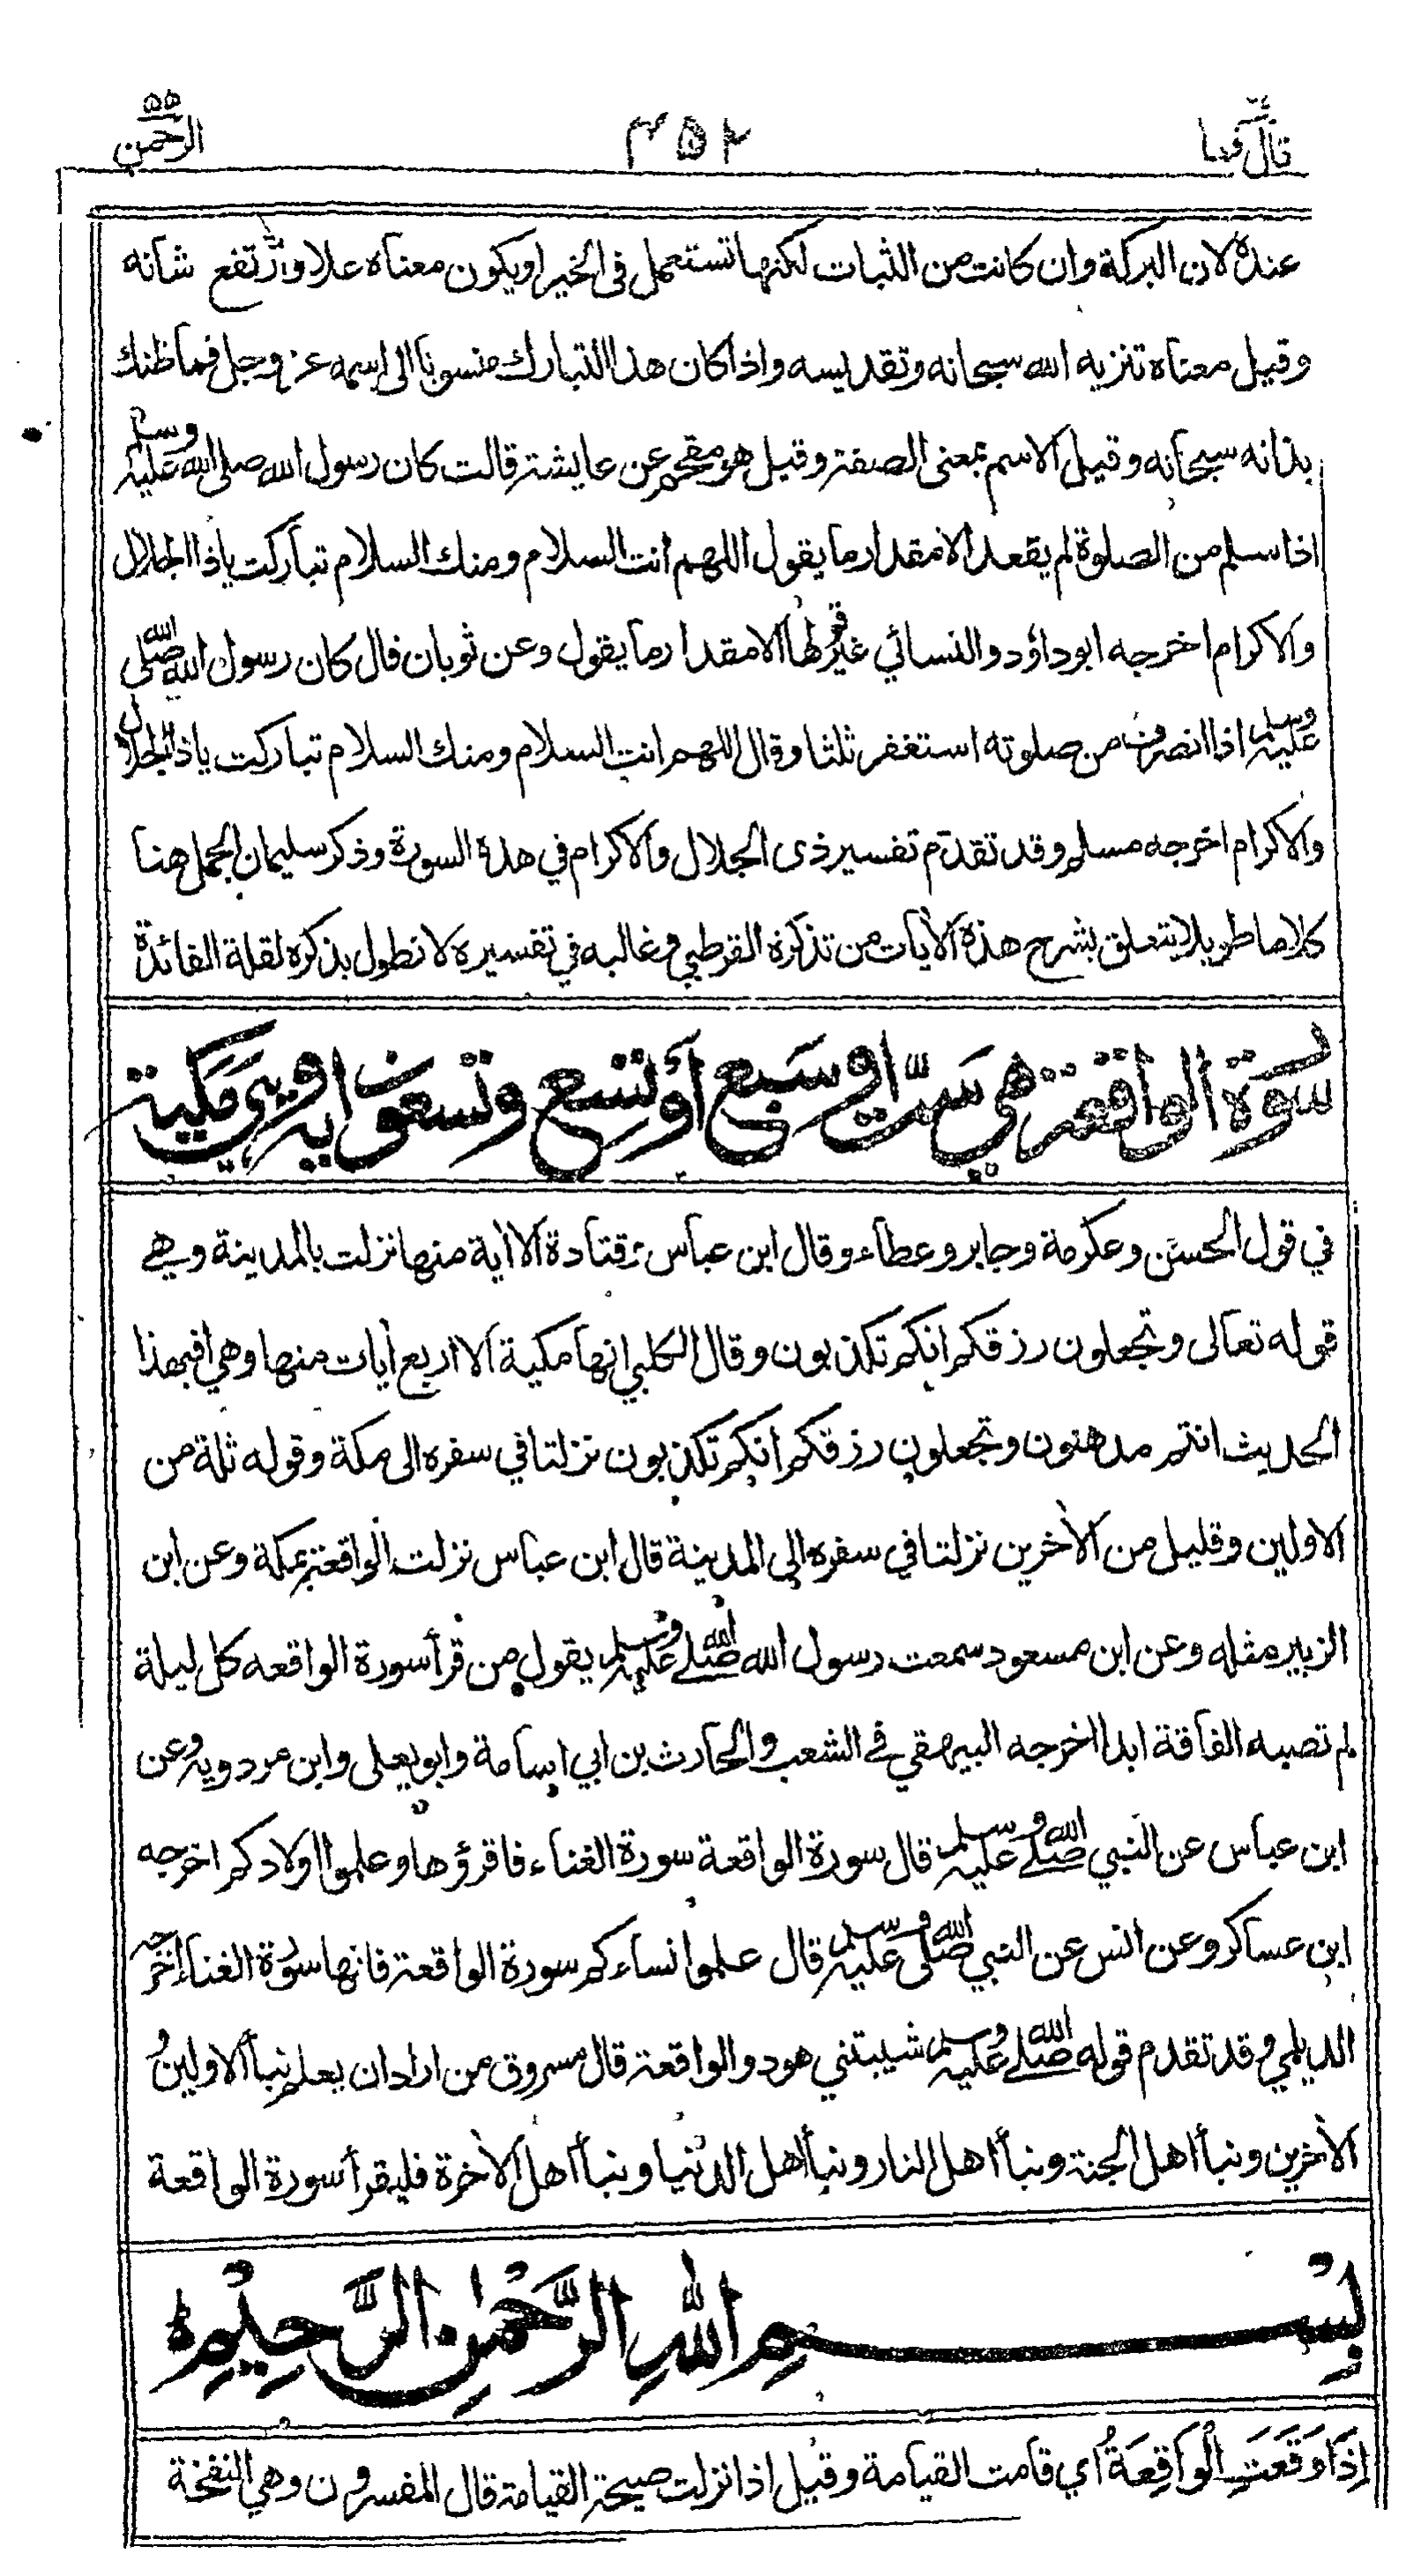 قال فما
٤٥٢
الرحمن ٥٥
عنده لان البركة وان كانت من الثبات لكنها تستعمل فى الخير او يكون معناه علا وارتفع شانه
وقيل معناه تنزيه الله سبحانه وتقديسه واذا كان هذا التبارك منسوبا الى اسمه عز وجل فما ظنك
بذاته سبحانه وقيل الاسم بمعنى الصفة وقيل هو مقحم عن عايشة قالت كان رسول الله صلى الله عليه وسلم
اذا سلم من الصلوة لم يقعد الا مقدار ما يقول اللهم انت السلام ومنك السلام تباركت ياذا الجلال
والاكرام اخرجه ابو داؤد والنسائي غير قولها الا مقدار ما يقول وعن ثوبان قال كان رسول الله صلى الله
عليه وسلم اذا انصرف من صلوته استغفر ثلثا وقال اللهم انت السلام ومنك السلام تباركت ياذا الجلال
والاكرام اخرجه مسلم وقد تقدم تفسير ذى الجلال والاكرام في هذه السورة وذكر سليمان الجمل هنا
كلاما طويلا يتعلق بشرح هذه الأيات من تذكرة القرطبي وغالبه في تفسيره لا نطول بذكره لقلة الفائدة
سورة الواقعة هي ست او سبع أو تسع وتسعون اية وهي مكية
في قول الحسن وعكرمة وجابر وعطاء وقال ابن عباس وقتادة الا أية منها نزلت بالمدينة وهي
قوله تعالى وتجعلون رزقكم انكم تكذبون وقال الكلبي انها مكية الا اربع أيات منها وهي افبهذا
الحديث انتم مدهنون وتجعلون رزقكم انكم تكذبون نزلتا في سفره الى مكة وقوله ثلة من
الاولين وقليل من الأخرين نزلتا في سفره الى المدينة قال ابن عباس نزلت الواقعة بمكة وعن ابن
الزبير مثله وعن ابن مسعود سمعت رسول الله صلى الله عليه وسلم يقول من قرأ سورة الواقعه كل ليلة
لم تصبه الفاقة ابدا اخرجه البيهقي في الشعب والحارث بن ابي اسامة وابو يعلى وابن مردويه وعن
ابن عباس عن النبي صلى الله عليه وسلم قال سورة الواقعة سورة الغناء فاقرؤها وعلموا اولادكم اخرجه
ابن عساكر وعن انس عن النبي صلى الله عليه وسلم قال علموا نساءكم سورة الواقعة فانها سورة الغناء اخرجه
الديلمي وقد تقدم قوله صلى الله عليه وسلم شيبتني هود والواقعة قال مسروق من اراد ان يعلم نبأ الاولين و
الأخرين ونبأ اهل الجنة ونبأ اهل النار ونبأ اهل الدنيا ونبأ اهل الأخرة فليقرأ سورة الواقعة
بِسْمِ اللهِ الرَّحْمٰنِ الرَّحِيْمِ
اِذَا وَقَعَتِ الْوَاقِعَةُ أي قامت القيامة وقيل اذا نزلت صيحة القيامة قال المفسرون وهي النفخة